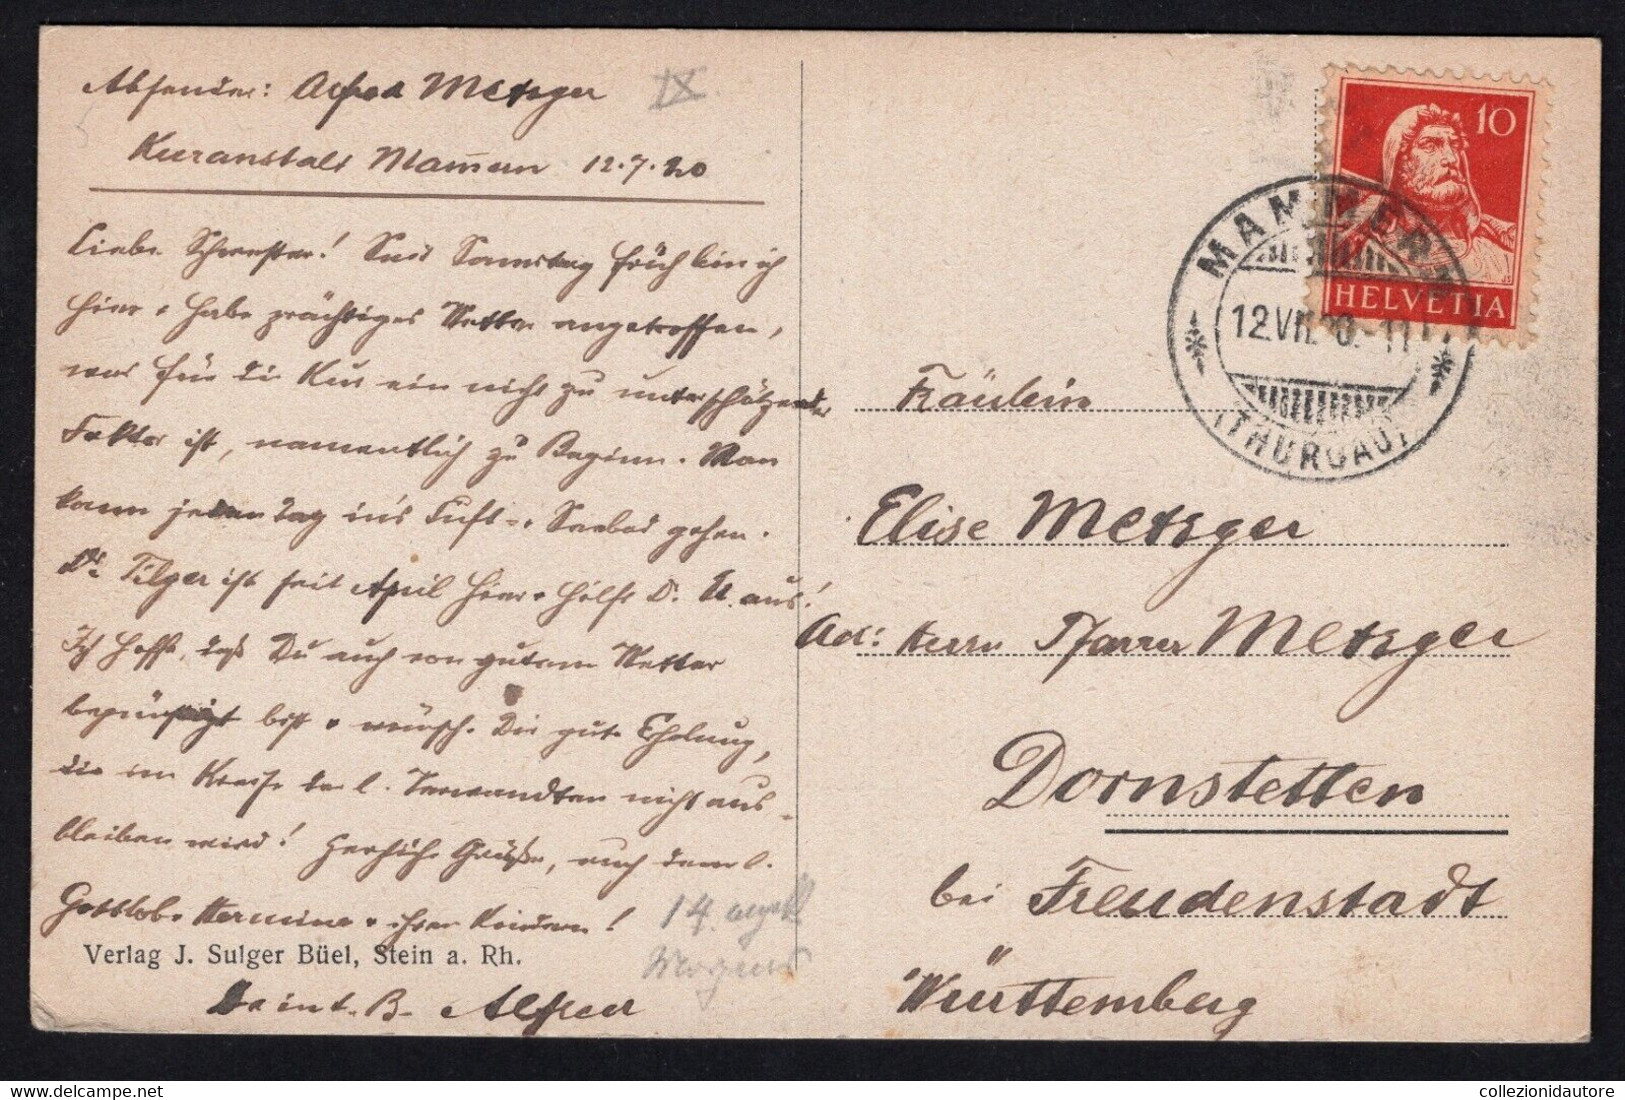 Absender: Alfred Metzger
IX
Kuranstalt Mam̄ern 12.7.20
Liebe Schwester! Seit Samstag früh bin ich
hier & habe prächtiges Wetter angetroffen,
was für die Kur ein nicht zu unterschätzender
Faktor ist, namentlich zu Beginn. Man
kann jeden Tag in's Luft- & Seebad gehen.
Dr. Pilger ist seit April hier & hilft D. U. aus!
Ich hoffe, daß Du auch von gutem Wetter
begünstigt bist & wünsch. Dir gute Erholung,
die im Kreise der l. Verwandten nicht aus-
bleiben wird! Herzliche Grüße, auch dem l.
Gottlob, Hermine & ihren Kindern!
14.
Verlag J. Sulger Büel, Stein a. Rh.
Dein t. B. Alfred
10
HELVETIA
MAMMERN
12.VII.20.-11
(THURGAU)
Fräulein
Elise Metzger
Ad: Herrn Pfarrer Metzger
Dornstetten
bei Freudenstadt
Württemberg
collezionidautore